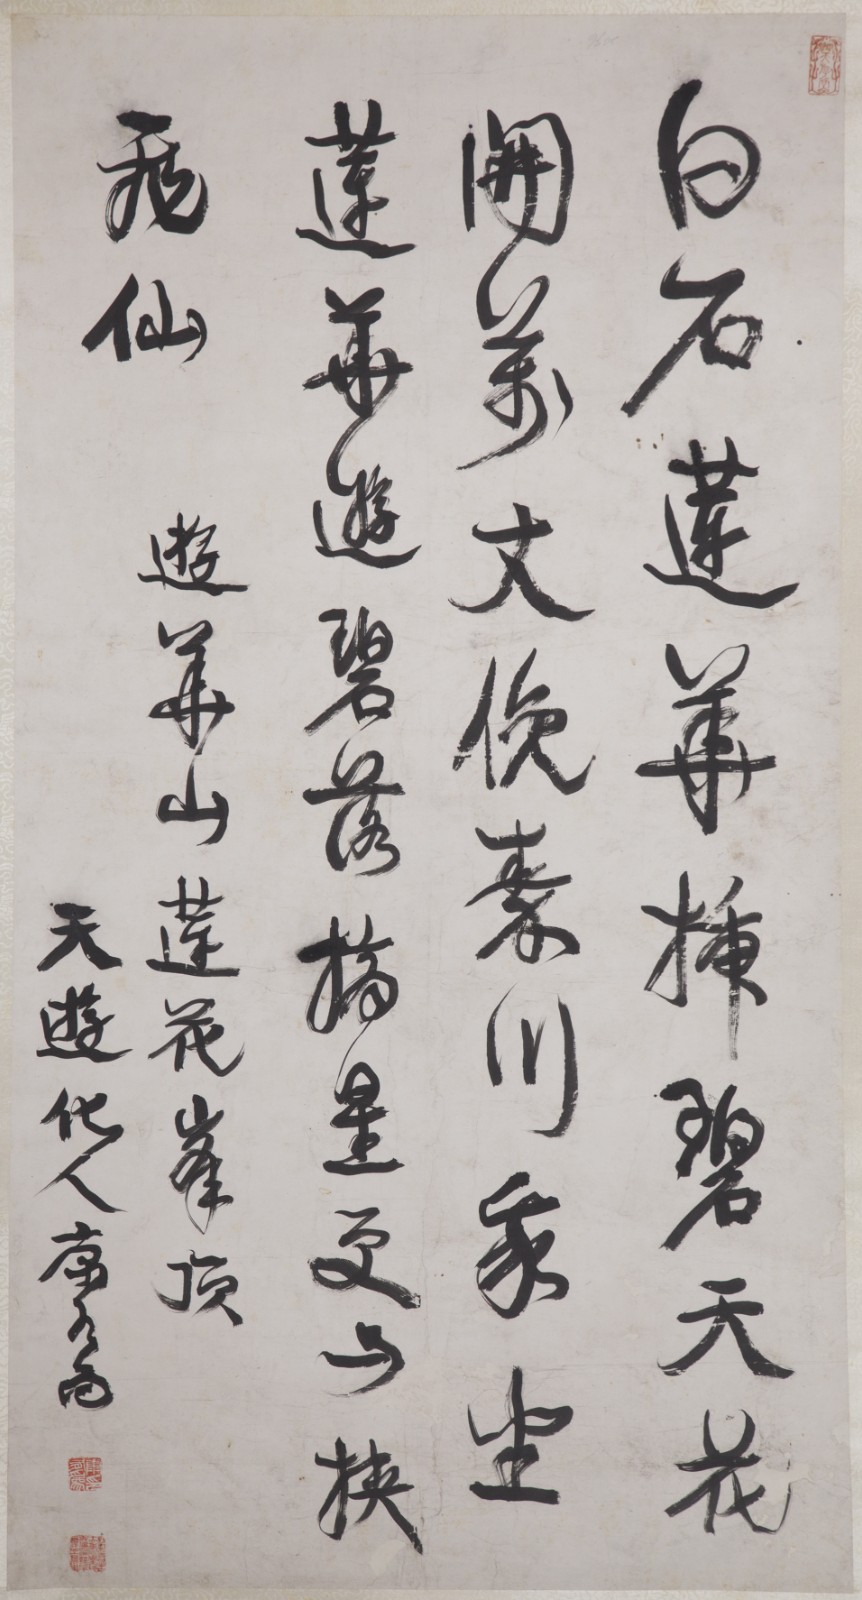 白石蓮華插碧天花
開萬丈俛秦川我坐
蓮華遊碧落摘星更与挾
飛仙
遊華山蓮花峯頂
天遊化人康有為